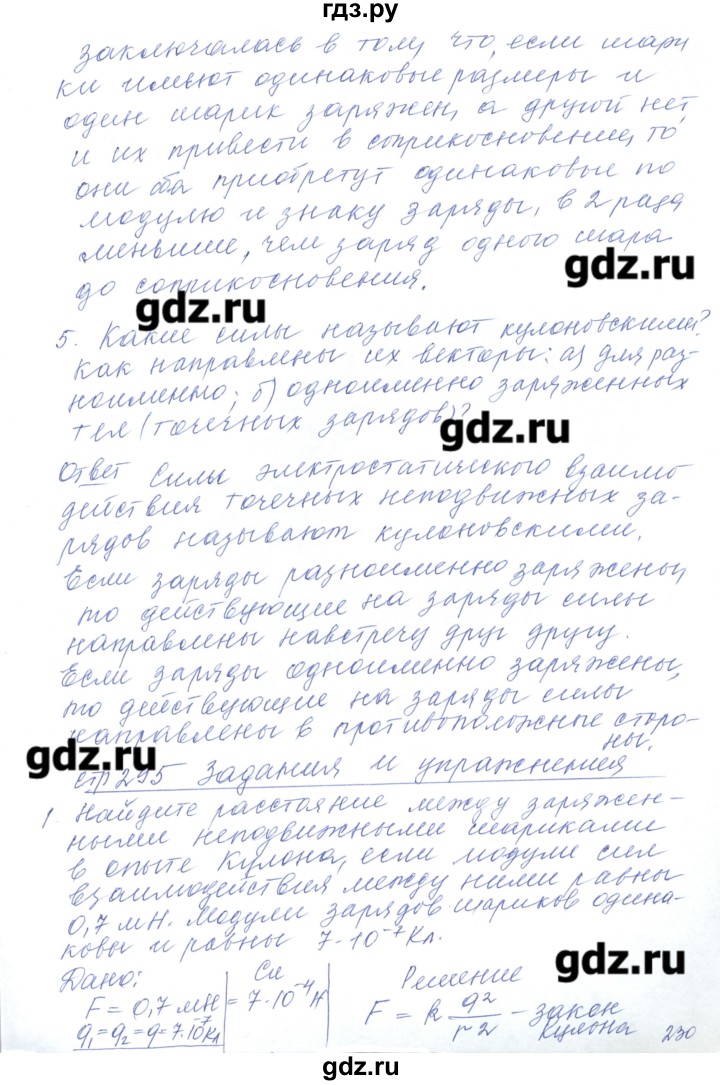 гдз.ру
заключалась в том, что, если шари
ки имеют одинаковые размеры и
один шарик заряжен, а другой нет,
и их привести в соприкосновение, то
они оба приобретут одинаковые по
модулю и знаку заряды, в 2 раза
меньше, чем заряд одного шара
до соприкосновения.
gdz.ru
gdz.ru
5. Какие силы называют кулоновскими?
как направлены их векторы: а) для раз-
ноименно; б) одноименно заряженных
тел (точечных зарядов)?
gdz.ru
Ответ Силы электростатического взаимо
действия точечных неподвижных за-
рядов называют кулоновскими.
Если заряды разноименно заряжены,
то действующие на заряды силы
направлены навстречу друг другу.
Если заряды одноименно заряжены,
то действующие на заряды силы
направлены в противоположные сторо-
ны.
gdz.ru
стр 295 Задания и упражнения
1. Найдите расстояние между заряжен-
ными неподвижными шариками
в опыте Кулона, если модули сил
взаимодействия между ними равны
0,7 мН. Модули зарядов шариков одина-
ковы и равны 7·10⁻⁷ Кл.
gdz.ru
Дано: Си Решение
F = 0,7 мН = 7·10⁻⁴ Н F = k q²/r² - закон
q₁=q₂=q=7·10⁻⁷Кл Кулона 230
gdz.ru